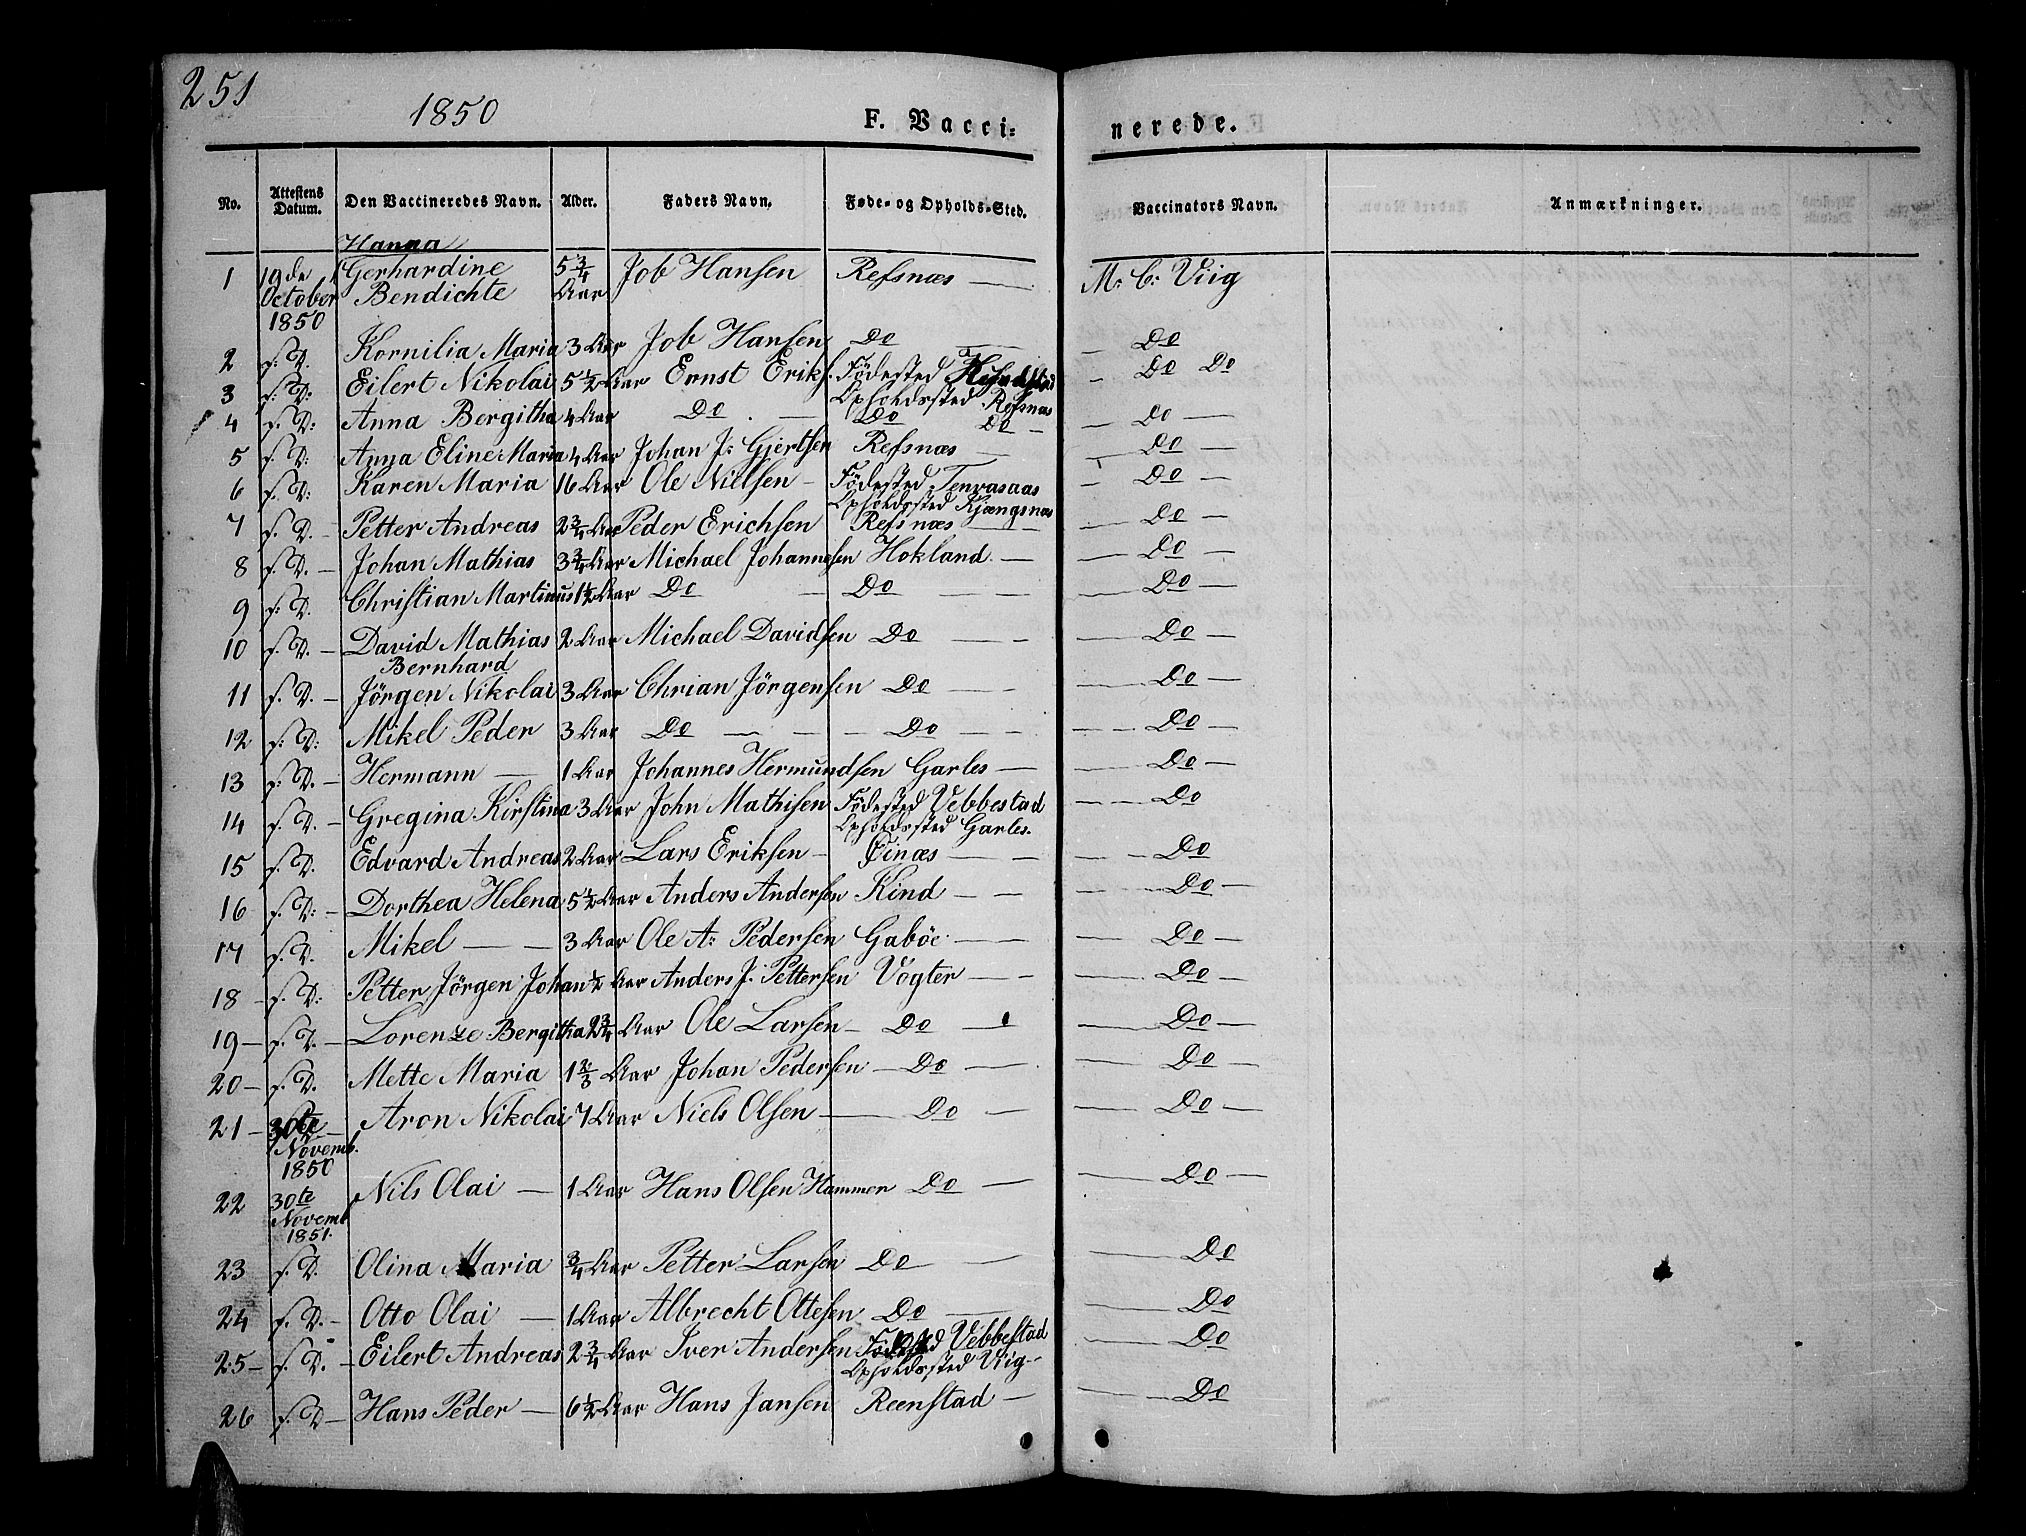 251
1850
F. Vacci=
nerede.
No. Attestens Datum. Den Vaccineredes Navn. Alder. Faders Navn. Føde- og Opholds-Sted. Vaccinators Navn. Anmærkninger.
Hanna
1 19de Gerhardine 5 3/4 Job Hansen Refsnæs — M: C: Viig
October Bendichte Aar
1850
2 s: D. Kornilia Maria 3 Aar Job Hansen Do — Do
3 s: D: Eilert Nikolai 5 1/2 Aar Ernst Eriks. Födested — Do Do
Opholdssted Refsnæs
4 s. D: Anna Bergitha 4 Aar Do — Do Do — Do —
5 s. D: Anna Eline Maria 4 Aar Johan J: Gjertsen Refsnæs — Do —
6 s. D: Karen Maria 16 Aar Ole Nielsen — Födested Tenvasaas — Do —
Opholdssted Kjængsnæs
7 s. D. — Petter Andreas 2 3/4 Aar Peder Erichsen Refsnæs — Do —
8 s. D. — Johan Mathias 3 3/4 Aar Michael Johannesen Hokland — Do —
9 s: D. Christian Martinus 1 1/2 Aar Do — Do — Do —
10 s. D. — David Mathias 2 Aar Michael Davidsen Do — Do —
Bernhard
11 s. D. — Jörgen Nikolai 3 Aar Chrian Jörgensen Do — Do —
12 s: D: Mikel Peder 3 Aar Do — Do — Do —
13 s. D. — Hermann — 1 Aar Johannes Hermundsen Garles — Do —
14 s. D. — Gregina Kirstina 3 Aar John Mathisen Födested Vebbestad — Do
Opholdssted Garles.
15 s. D. Edvard Andreas 2 Aar Lars Eriksen — Öinæs — Do
16 s. D: — Dorthea Helena 5 1/2 Aar Anders Andersen Kind — Do —
17 s. D. Mikel — 3 Aar Ole A: Pedersen Gaböe — Do —
18 — s. D: Petter Jörgen Johan 1/2 Aar Anders J. Pettersen Vogter — Do —
19 — s. D. — Lorenze Bergitha 2 3/4 Aar Ole Larsen — Do — Do —
20 — s. D. Mette Maria 1 2/3 Aar Johan Pedersen — Do — Do —
21 — 30te — Aron Nikolai 7 Aar Niels Olsen — Do — Do —
Novemb.
1850
22 30te Nils Olai — 1 Aar Hans Olsen Hammer Do — Do —
Novemb
1851.
23 s. D. Olina Maria 3/4 Aar Petter Larsen Do — Do
24 s. D. — Otto Olai — 1 Aar Albrecht Ottesen Do — Do
25 — s. D. — Eilert Andreas 2 3/4 Aar Iver Andersen Födested Vebbestad — Do
Opholdssted Viig —
26 s. D — Hans Peder — 6 1/2 Aar Hans Jansen Reenstad — Do